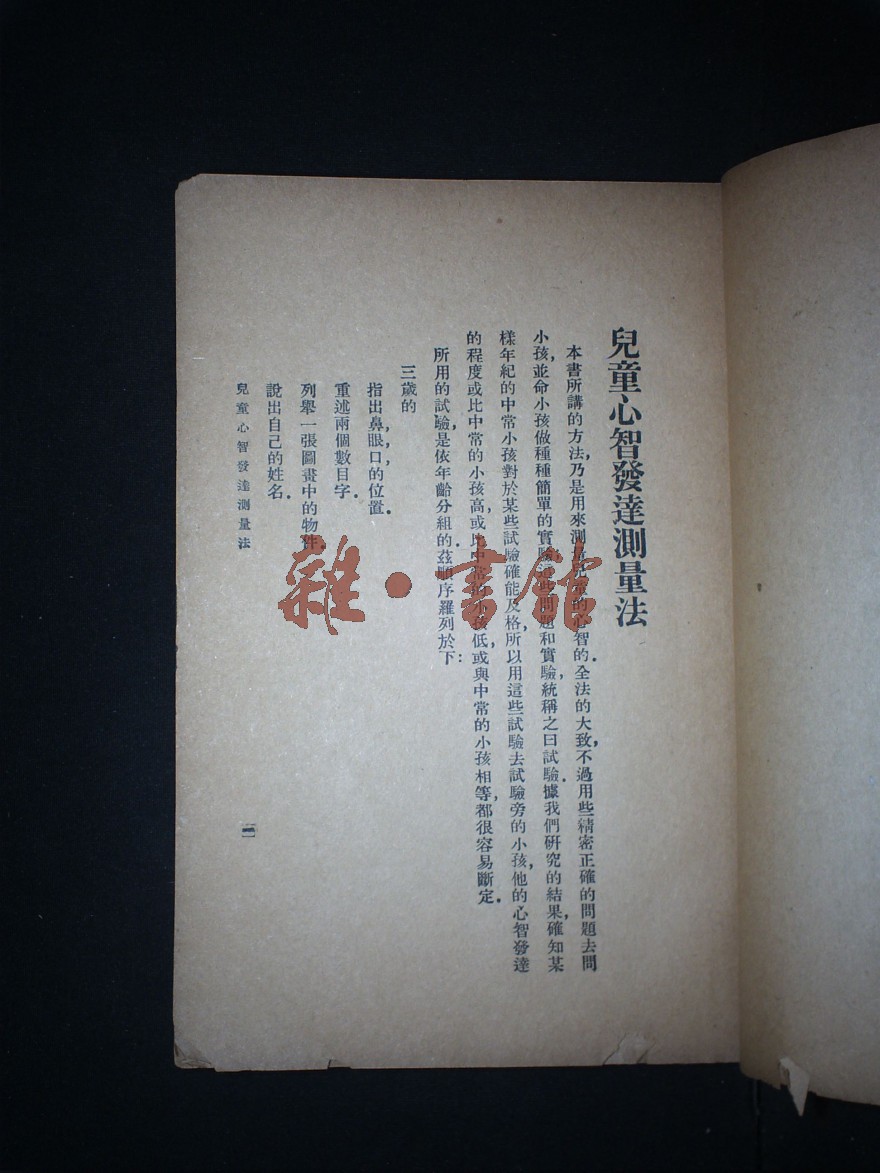 兒童心智發達測量法
本書所講的方法,乃是用來測量兒童的心智的.全法的大致,不過用些精密正確的問題去問
小孩,並命小孩做種種簡單的實驗,這些問題和實驗,統稱之曰試驗.據我們研究的結果,確知某
樣年紀的中常小孩對於某些試驗確能及格,所以用這些試驗去試驗旁的小孩,他的心智發達
的程度或比中常的小孩高,或比中常的小孩低,或與中常的小孩相等,都很容易斷定.
所用的試驗,是依年齡分組的.茲順序羅列於下:
三歲的
指出鼻,眼,口的位置.
重述兩個數目字.
列舉一張圖畫中的物件.
說出自己的姓名.
兒童心智發達測量法
雜·書館